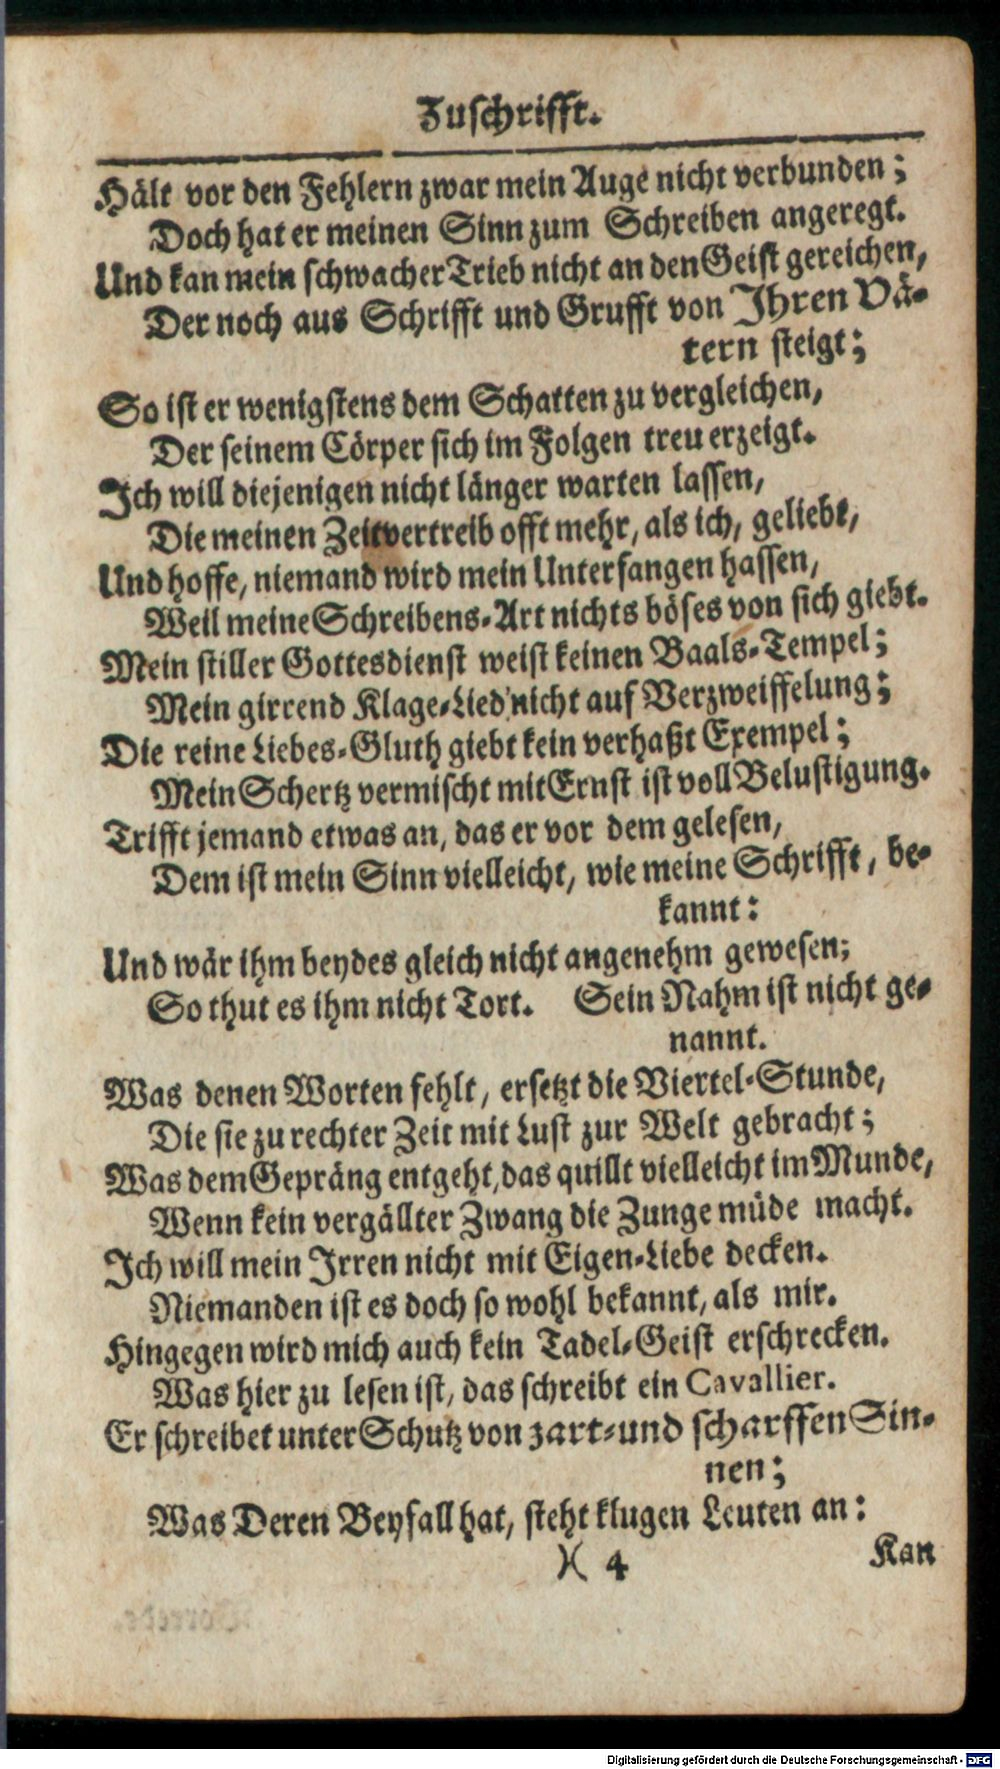 Zuschrifft.
Hält vor den Fehlern zwar mein Auge nicht verbunden;
Doch hat er meinen Sinn zum Schreiben angeregt.
Und kan mein schwacher Trieb nicht an den Geist gereichen,
Der noch aus Schrifft und Grufft von Ihren Vä-
tern steigt;
So ist er wenigstens dem Schatten zu vergleichen,
Der seinem Cörper sich im Folgen treu erzeigt.
Ich will diejenigen nicht länger warten lassen,
Die meinen Zeitvertreib offt mehr, als ich, geliebt,
Und hoffe, niemand wird mein Unterfangen hassen,
Weil meine Schreibens-Art nichts böses von sich giebt.
Mein stiller Gottesdienst weist keinen Baals-Tempel;
Mein girrend Klage-Lied nicht auf Verzweiffelung;
Die reine Liebes-Gluth giebt kein verhaßt Exempel;
Mein Schertz vermischt mit Ernst ist voll Belustigung.
Trifft jemand etwas an, das er vor dem gelesen,
Dem ist mein Sinn vielleicht, wie meine Schrifft, be-
kannt:
Und wär ihm beydes gleich nicht angenehm gewesen;
So thut es ihm nicht Tort. Sein Nahm ist nicht ge-
nannt.
Was denen Worten fehlt, ersetzt die Viertel-Stunde,
Die sie zu rechter Zeit mit Lust zur Welt gebracht;
Was dem Gepräng entgeht, das quillt vielleicht im Munde,
Wenn kein vergällter Zwang die Zunge müde macht.
Ich will mein Irren nicht mit Eigen-Liebe decken.
Niemanden ist es doch so wohl bekannt, als mir.
Hingegen wird mich auch kein Tadel-Geist erschrecken.
Was hier zu lesen ist, das schreibt ein Cavallier.
Er schreibet unter Schutz von zart- und scharffen Sin-
nen;
Was Deren Beyfall hat, steht klugen Leuten an:
)( 4
Kan
Digitalisierung gefördert durch die Deutsche Forschungsgemeinschaft - DFG